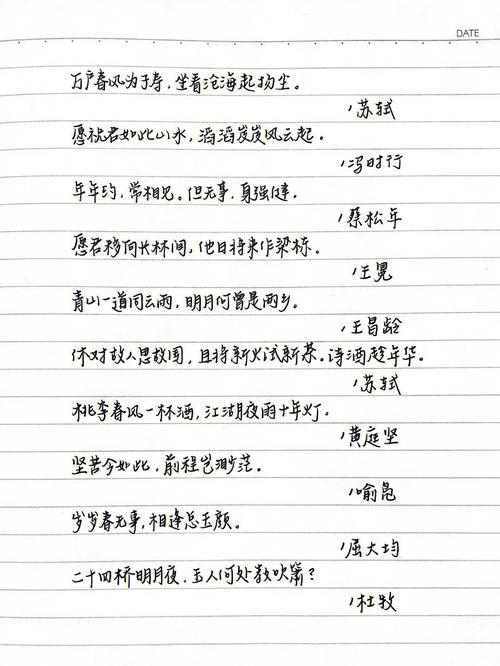 DATE
万户春风为子寿，坐看沧海起扬尘。
/苏轼
愿祝君如此山水，滔滔岌岌风云起。
/冯时行
年年约，常相见。但无事，身强健。
/蔡松年
愿君移向长林间，他日将来作梁栋。
/王冕
青山一道同云雨，明月何曾是两乡。
/王昌龄
休对故人思故国，且将新火试新茶。诗酒趁年华。
/苏轼
桃李春风一杯酒，江湖夜雨十年灯。
/黄庭坚
坚苦今如此，前程岂渺茫。
/喻凫
岁岁春无事，相逢总玉颜。
/屈大均
二十四桥明月夜，玉人何处教吹箫？
/杜牧